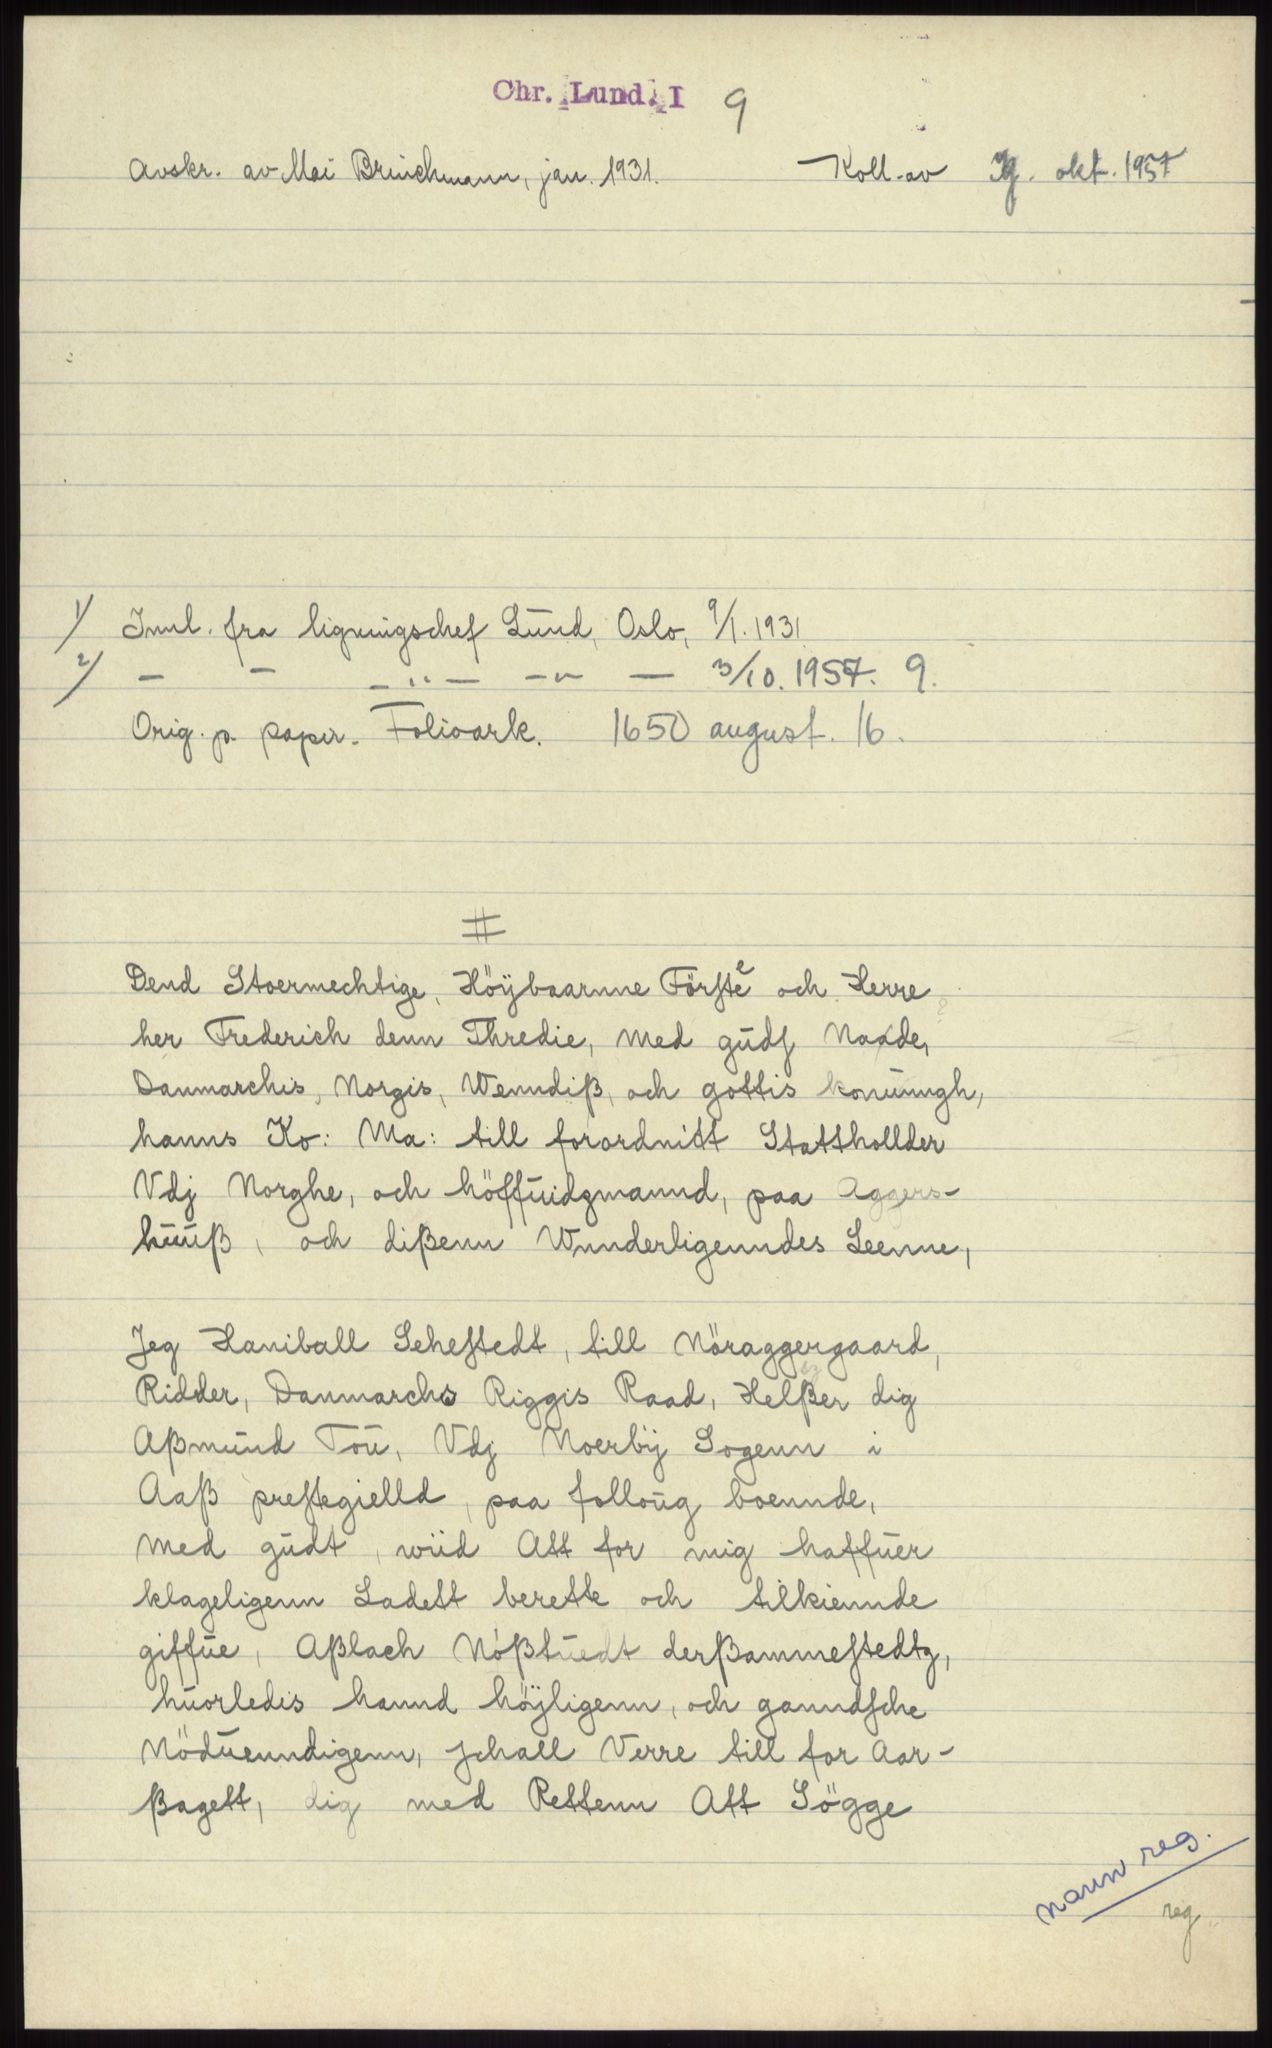 Chr. Lund I 9
Avskr. av Mai Brinchmann, jan. 1931. Koll. av okt. 1957
1/ Innl. fra ligningschef Lund, Oslo, 9/1. 1931
2/ — — — " — — " — — 3/10. 1957. 9.
Orig. p. papir. Folioark. 1650 august. 16.
#
Dend Stoermechtige, Höÿbaarnne Förste och Herre
her Frederich denn Thredie, med gudſ Naade,
Danmarchis, Norgis, Wenndiß, och gottis konnungh,
hanns Ko: Ma: till forordnitt Stattholder
Vdj Norghe, och höffuidzmannd, paa Aggers-
huuß, och dißenn Wnnderligenndes Leenne,
Jeg Haniball Sehestedt, till Nöraggergaard,
Ridder, Danmarchs Riggis Raad, Helßer dig
Aßmund Tou, Vdj Noerbÿ Sogenn i
Aaß prestegielld, paa folloug boennde,
med gudt, wiid Att for mig haffuer
klageligenn Ladett berette och tilkiennde
giffue, Aßlach Nößtuedt derßammestedtz,
huorledis hannd höÿligenn, och ganndsche
Nöduenndigenn, schall Verre till for Aar-
ßagett, dig med Rettenn Att Sögge
navn reg.
reg